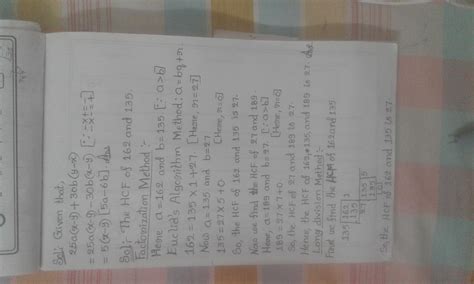 Sol: Given that,
25a(x-y)+30b(y-x)
= 25a(x-y)-30b(x-y)
= 5(x-y) [5a-6b] Ans
Sol: The HCF of 162 and 135.
Factorization Method:-
Here a=162 and b=135 [∵ a>b]
Euclid's Algorithm Method: a=bq+r.
162 = 135 x 1 + 27. [Here, r=27]
Now a=135 and b=27
135 = 27 x 5 + 0 [Here, r=0]
So, the HCF of 162 and 135 is 27.
Now we find the HCF of 27 and 189
Here, a=189 and b=27. [∵ a>b]
189 = 27 x 7 + 0 [Here, r=0]
So, the HCF of 27 and 189 is 27.
Hence, the HCF of 162, 135 and 189 is 27. Ans
Long division Method:-
First we find the HCF of 162 and 135.
135 162 1
135
27 135 5
135
0
So, the HCF of 162 and 135 is 27.